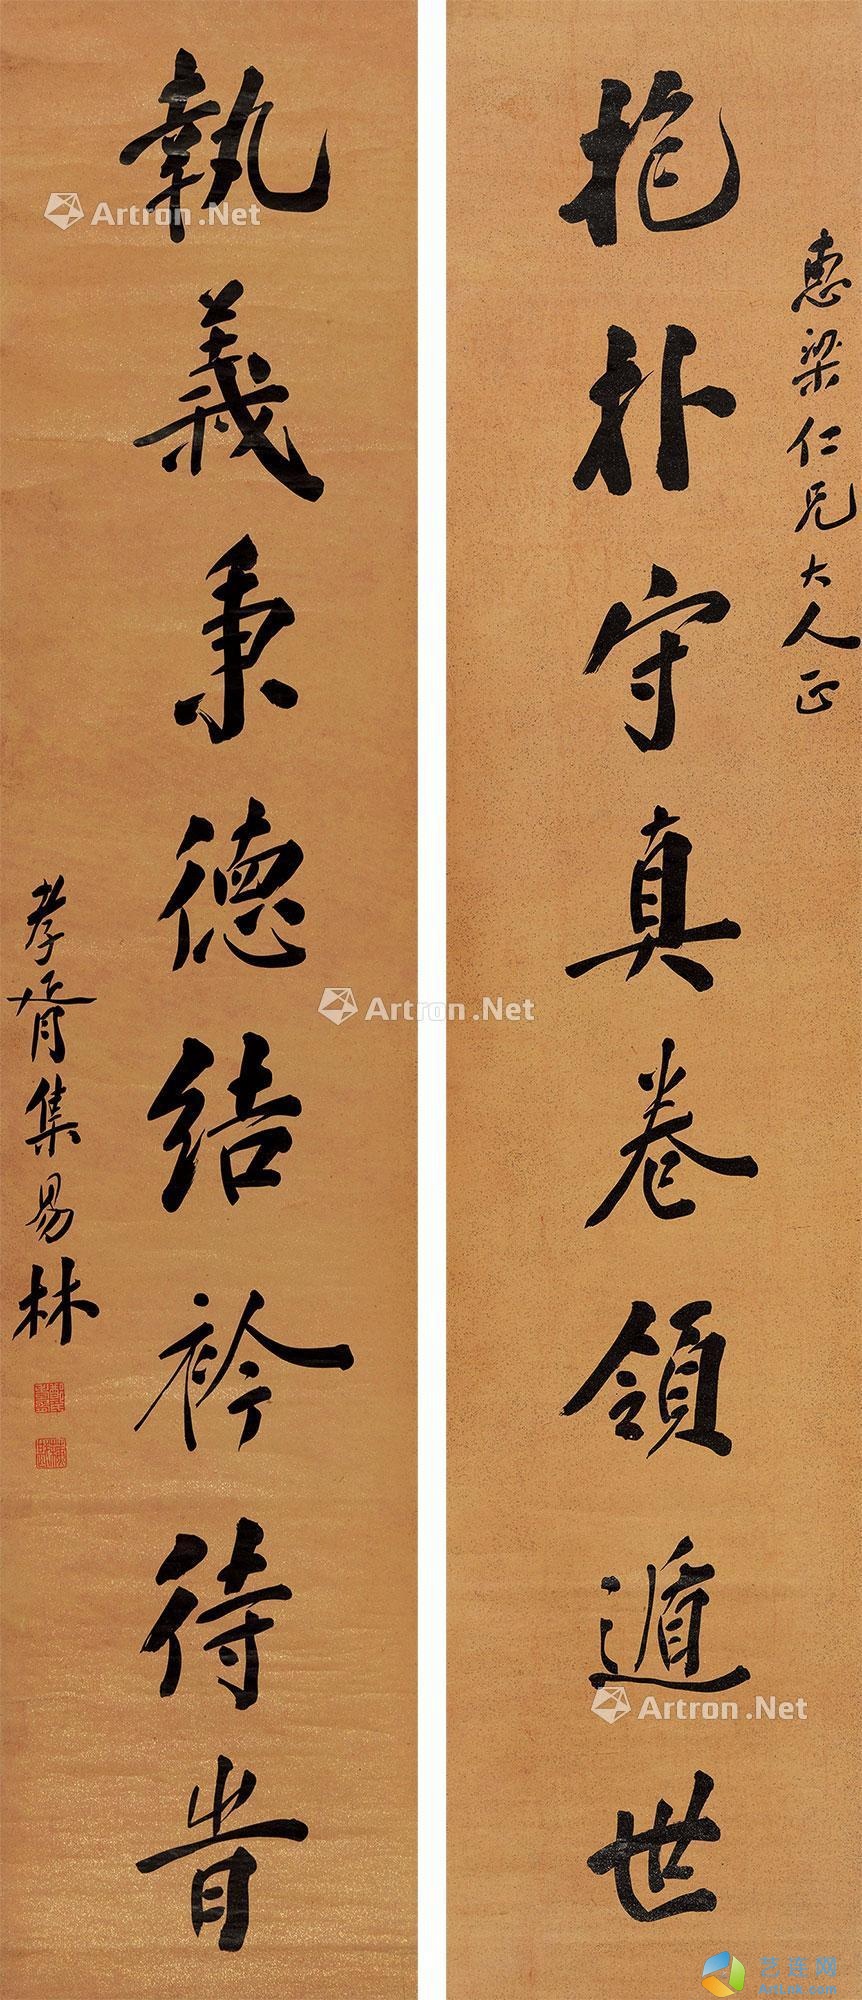 惠梁仁兄大人正
抱朴守真卷領遁世
執義秉德結衿待旹
孝胥集易林
Artron.Net
Artron.Net
Artron.Net
艺连网
ArtLink.com